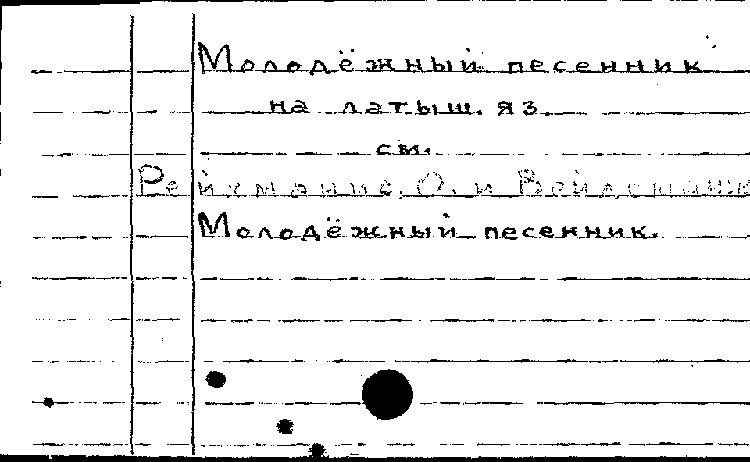 Молодёжный песенник
на латыш. яз.
см.
Рейхманис, О. и
Молодёжный песенник.